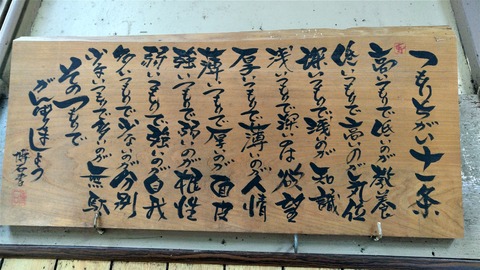 つもりちがい十一条
高いつもりで低いのが教養
低いつもりで高いのが気位
深いつもりで浅いのが知識
浅いつもりで深いのは欲望
厚いつもりで薄いのが人情
薄いつもりで厚いのが面皮
強いつもりで弱いのが根性
弱いつもりで強いのが自我
多いつもりで少ないのが分別
少ないつもりで多いのが無駄
そのつもりで
がんばりましょう